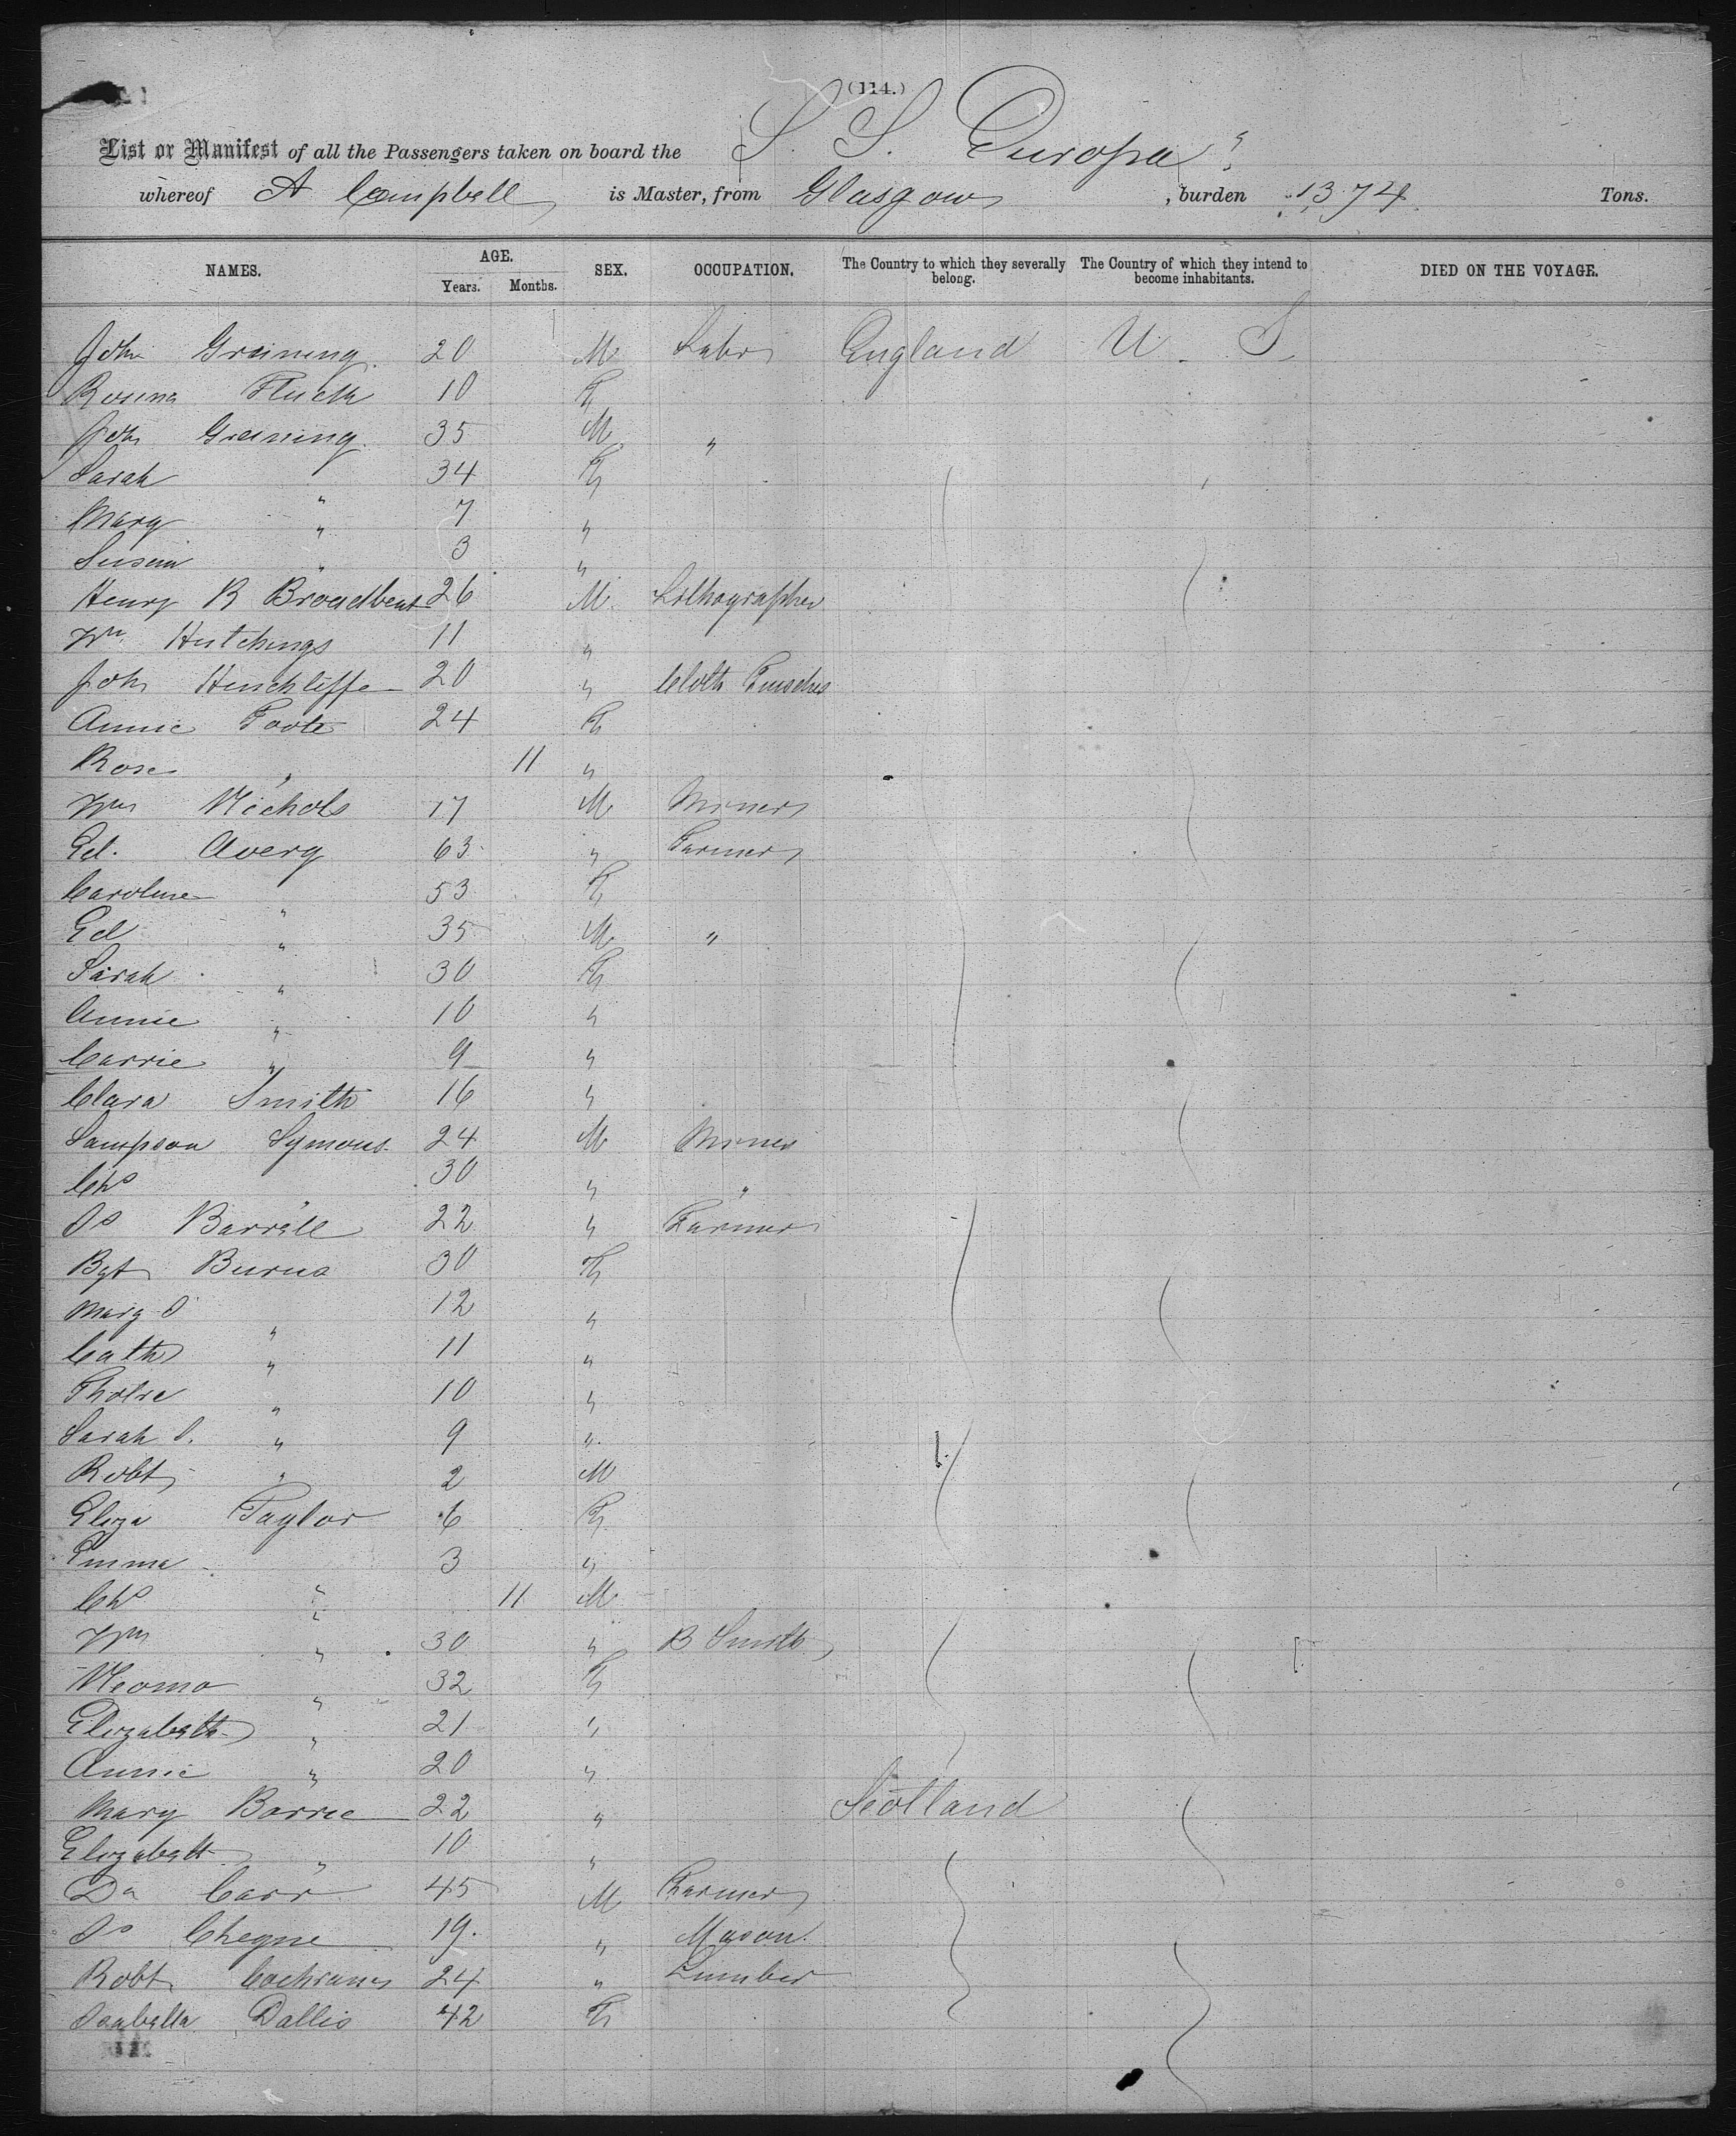 (114.)
List or Manifest of all the Passengers taken on board the S. S. Europa
whereof A Campbell is Master, from Glasgow , burden 1374 Tons.
NAMES. AGE. Years. Months. SEX. OCCUPATION. The Country to which they severally belong. The Country of which they intend to become inhabitants. DIED ON THE VOYAGE.
John Greining 20 M Labr England U. S.
Rosina 10 F
John Greining 35 M "
Sarah " 34 F
Mary " 7 "
Susan " 3 "
Henry R Broadbent 26 M Lithographer
Wm Hutchings 11 "
John Hinchliffe 20 " Cloth Finisher
Annie Foote 24 F
Rose " 11 "
Wm Nichols 17 M Miner
Ed. Avery 63 " Farmer
Caroline " 53 F
Ed " 35 M "
Sarah " 30 F
Annie " 10 "
Carrie " 9 "
Clara Smith 16 "
Sampson Symons 24 M Miner
Chs " 30 " "
Js Barrall 22 " Farmer
Bgt Burns 30 F
Mary J " 12 "
Cath " 11 "
" 10 "
Sarah J. " 9 "
Robt " 2 M
Eliza Taylor 6 F
Emma " 3 "
Chs " 11 M
Wm " 30 " B Smith
Neomo " 32 F
Elizabeth " 21 "
Annie " 20 "
Mary Barrie 22 " Scotland
Elizabeth " 10 "
Da Carr 45 M Farmer
Js Cheyne 19. " Mason
Robt Cochrane 24 "
Isabella Dallis 42 F